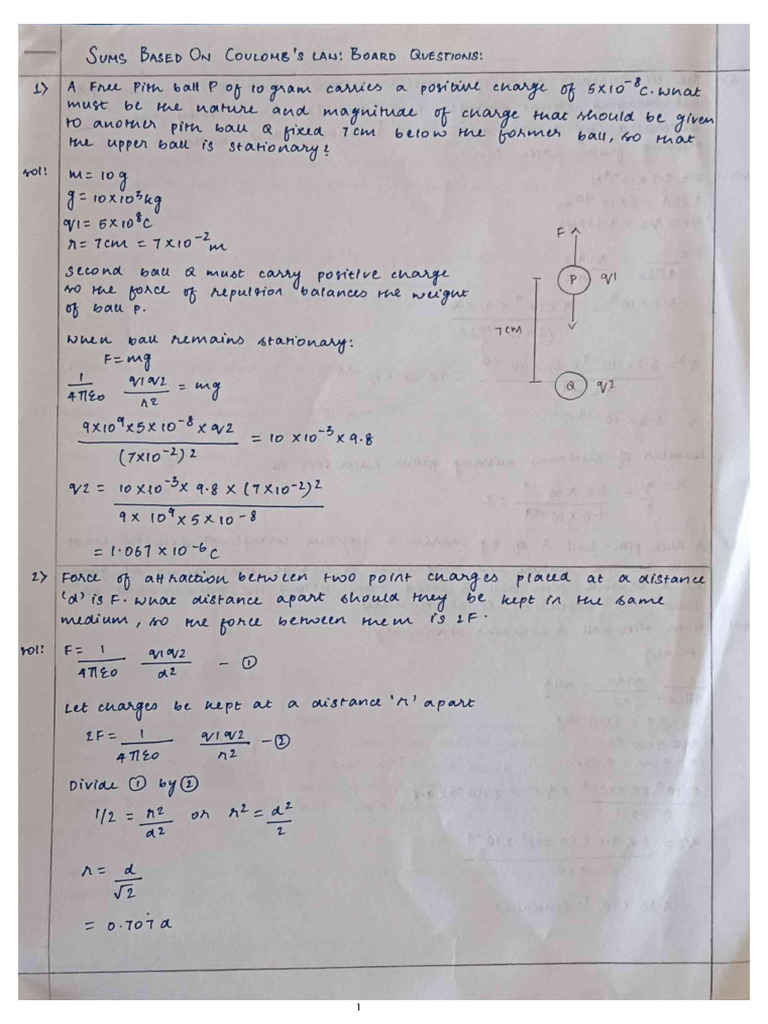 SUMS BASED ON COULOMB'S LAW: BOARD QUESTIONS:
1) A Free Pith ball P of 10 gram carries a positive charge of 5×10⁻⁸C. What
must be the nature and magnitude of charge that should be given
to another pith ball Q fixed 7cm below the former ball, so that
the upper ball is stationary?
sol: m = 10g
g = 10×10³kg
q1 = 5×10⁸C
r = 7cm = 7×10⁻²m
Second ball Q must carry positive charge
so the force of repulsion balances the weight
of ball P.
When ball remains stationary:
F = mg
1/4πε0 q1q2/r2 = mg
9×10⁹×5×10⁻⁸×q2/(7×10⁻²)2 = 10×10⁻³×9.8
q2 = 10×10⁻³×9.8×(7×10⁻²)2/9×10⁹×5×10-8
= 1.067×10⁻⁶C
F
P q1
7cm
Q q2
2) Force of attraction between two point charges placed at a distance
'd' is F. What distance apart should they be kept in the same
medium, so the force between them is 2F.
sol: F = 1/4πε0 q1q2/d2 - ①
Let charges be kept at a distance 'r' apart
2F = 1/4πε0 q1q2/r2 - ②
Divide ① by ②
1/2 = r2/d2 or r² = d²/2
r = d/√2
= 0.707d
1